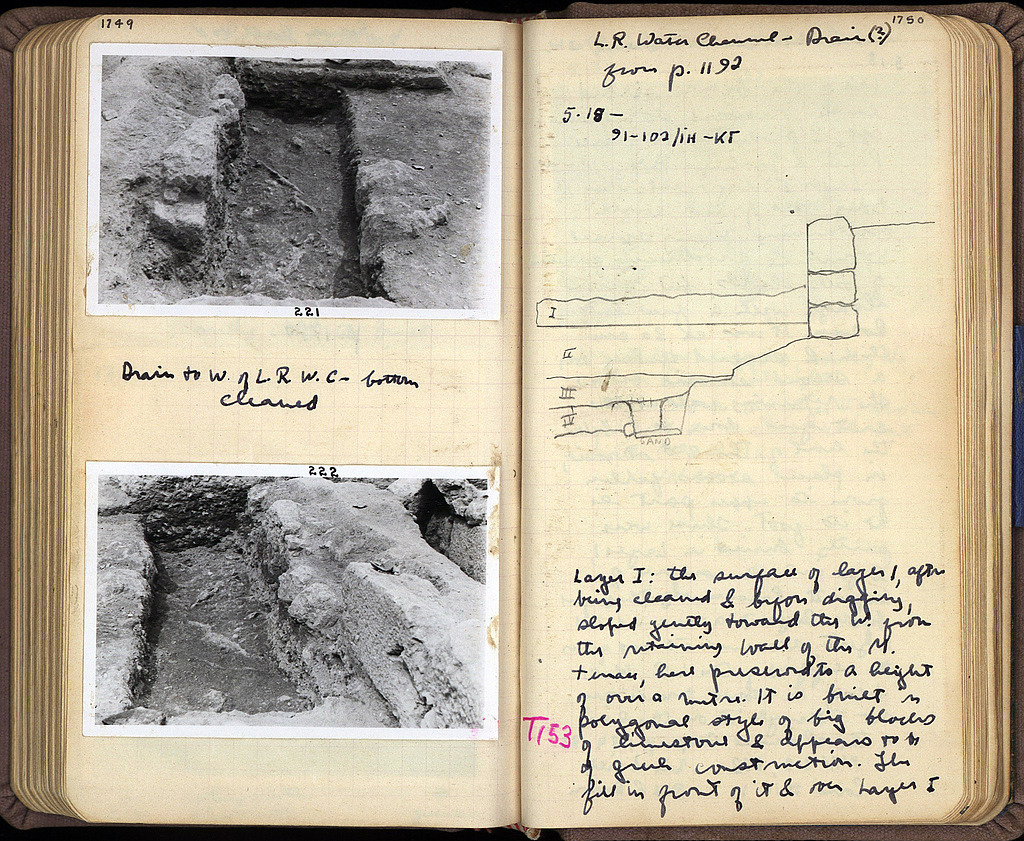 1749
221
Drain to W. of L.R.W.C - bottom
cleaned
222
1750
L.R. Water Channel - Drain (?)
from p. 1192
5-18-
91-102/ΙΗ-ΚΓ
I
II
III
IV
SAND
Layer I: the surface of layer 1, after
being cleaned & before digging,
sloped gently toward the W. from
the retaining wall of the N.
terrace, here preserved to a height
of over a metre. It is built in
polygonal style of big blocks
T153
of limestone & appears to be
of greek construction. The
fill in front of it & over Layer I